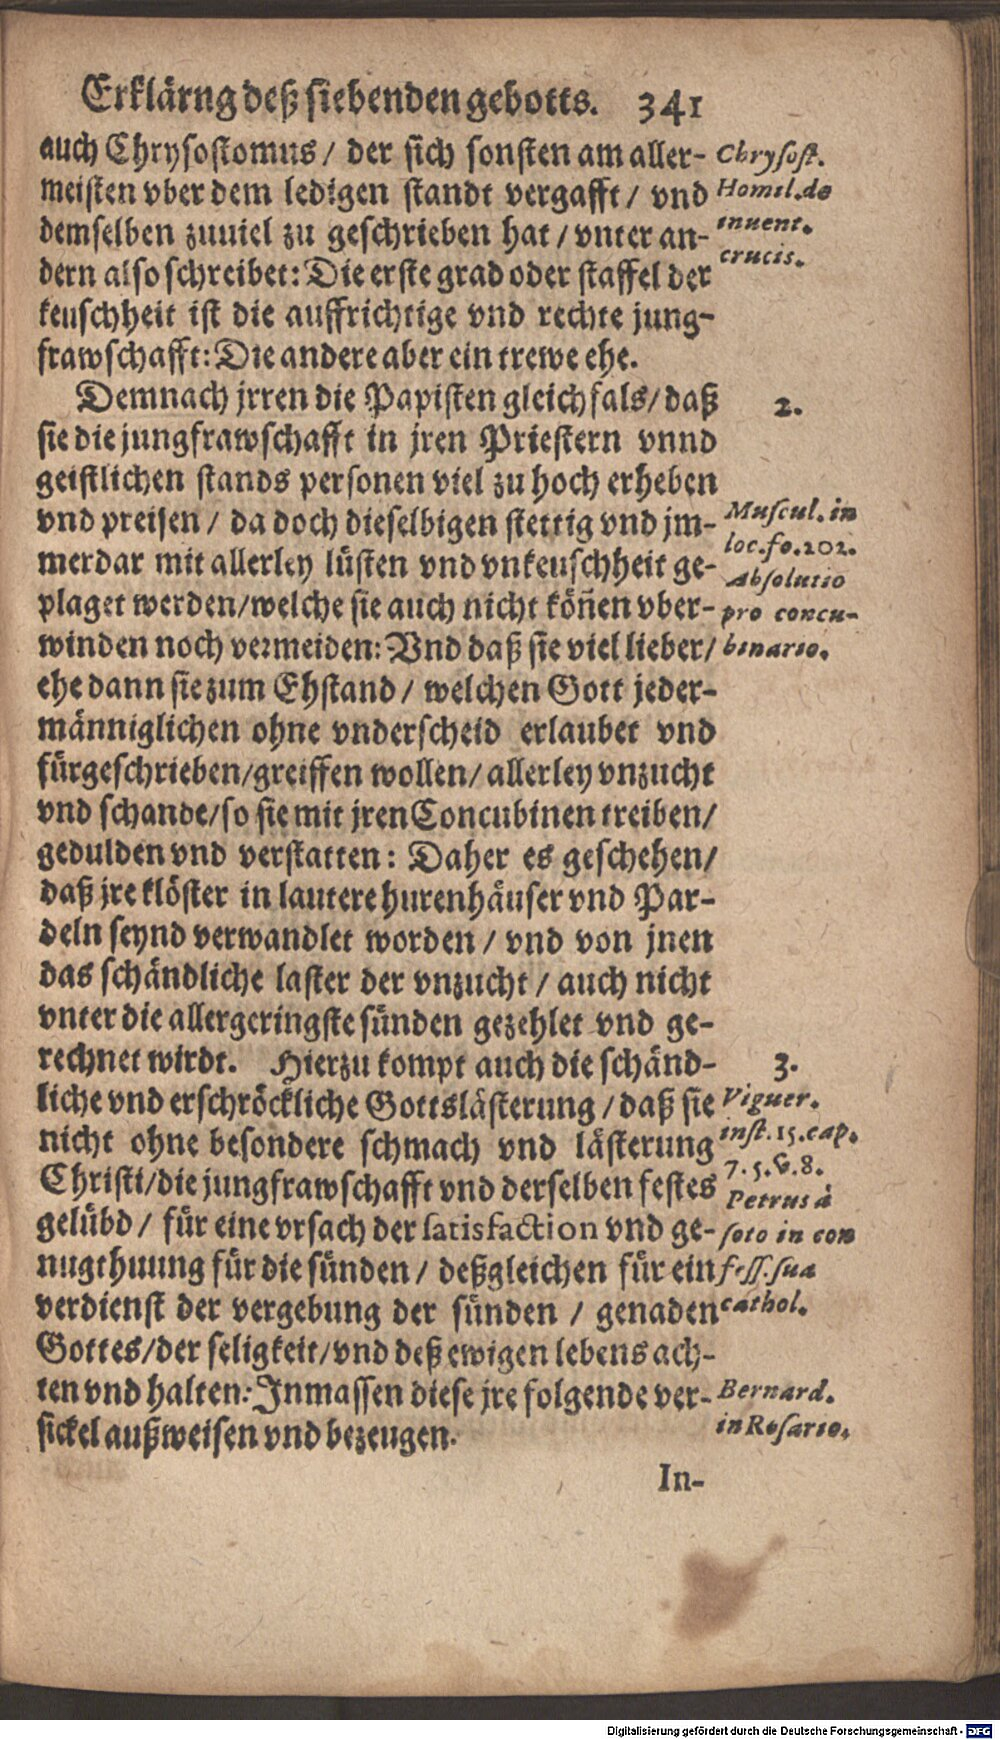 Erklärng deß siebenden gebotts. 341
auch Chrysostomus / der sich sonsten am aller-
meisten vber dem ledigen standt vergafft / vnd
demselben zuuiel zu geschrieben hat / vnter an-
dern also schreibet: Die erste grad oder staffel der
keuschheit ist die auffrichtige vnd rechte jung-
frawschafft: Die andere aber ein trewe ehe.
Chrysost.
Homil. de
inuent.
crucis.
Demnach jrren die Papisten gleichfals / daß
sie die jungfrawschafft in jren Priestern vnnd
geistlichen stands personen viel zu hoch erheben
vnd preisen / da doch dieselbigen stettig vnd jm-
merdar mit allerley lüsten vnd vnkeuschheit ge-
plaget werden / welche sie auch nicht köñen vber-
winden noch vermeiden: Vnd daß sie viel lieber /
ehe dann sie zum Ehstand / welchen Gott jeder-
männiglichen ohne vnderscheid erlaubet vnd
fürgeschrieben / greiffen wollen / allerley vnzucht
vnd schande / so sie mit jren Concubinen treiben /
gedulden vnd verstatten: Daher es geschehen /
daß jre klöster in lautere hurenhäuser vnd Par-
deln seynd verwandlet worden / vnd von jnen
das schändliche laster der vnzucht / auch nicht
vnter die allergeringste sünden gezehlet vnd ge-
rechnet wirdt. Hierzu kompt auch die schänd-
liche vnd erschröckliche Gottslästerung / daß sie
nicht ohne besondere schmach vnd lästerung
Christi / die jungfrawschafft vnd derselben festes
gelübd / für eine vrsach der satisfaction vnd ge-
nugthuung für die sünden / deßgleichen für ein
verdienst der vergebung der sünden / genaden
Gottes / der seligkeit / vnd deß ewigen lebens ach-
ten vnd halten: Inmassen diese jre folgende ver-
sickel außweisen vnd bezeugen.
2.
Muscul. in
loc. fo. 202.
Absolutio
pro concu-
binario.
3.
Viguer.
inst. 15. cap.
7. 5. & 8.
Petrus à
soto in con
fess. sua
cathol.
Bernard.
in Rosario.
In-
Digitalisierung gefördert durch die Deutsche Forschungsgemeinschaft - DFG